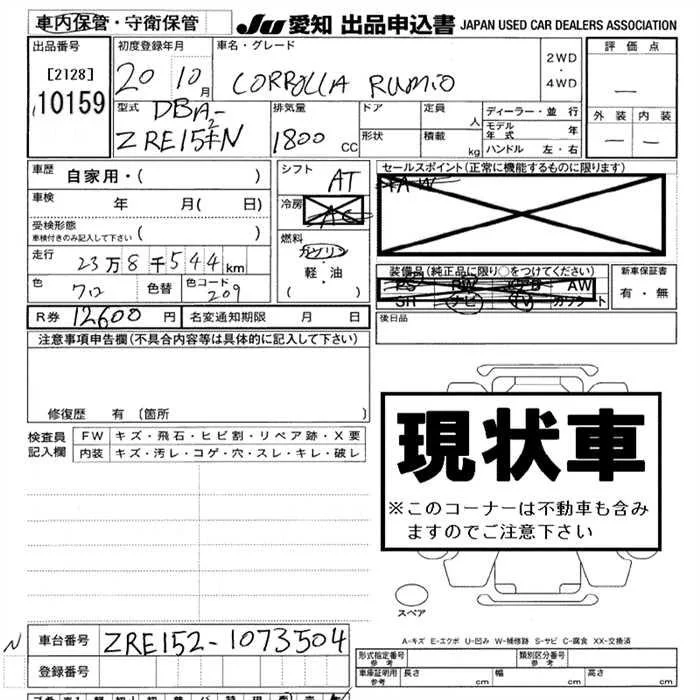 車内保管・守衛保管
JU 愛知 出品申込書 JAPAN USED CAR DEALERS ASSOCIATION
出品番号 初度登録年月 車名・グレード 評価点
[2128] 20 10月 COROLLA RUMIO 2WD・4WD —
10159
型式 DBA- 排気量 ドア 定員 人 ディーラー・並行 外装 内装
ZRE152N 1800 CC 形状 積載 kg モデル年式 年 — —
ハンドル 左・右
車歴 自家用・( ) シフト AT セールスポイント(正常に機能するものに限ります)
車検 年 月( 日) 冷房 AC AW
受検形態
車検付きのみ記入して下さい ( ) 燃料 ガソリン・軽・油 ( )
走行 23万8千544km 装備品(純正品に限り○をつけてください) 新車保証書
色 クロ 色替 色コード 209 PS PW AW 有・無
SH ナビ TV
R券 12600円 名変通知期限 月 日 後日品
注意事項申告欄(不具合内容等は具体的に記入して下さい)
修復歴 有 [箇所 ]
検査員記入欄 FW キズ・飛石・ヒビ割・リペア跡・X要
内装 キズ・汚レ・コゲ・穴・スレ・キレ・破レ
現状車
※このコーナーは不動車も含み
ますのでご注意下さい
スペア
A-キズ E-エクボ U-凹み W-補修跡 S-サビ C-腐食 XX-交換済
N 車台番号 ZRE152-1073504
形式指定番号 参考 類別区分番号 参考
登録番号 車庫証明用 参考 長さ cm 幅 cm 高さ cm